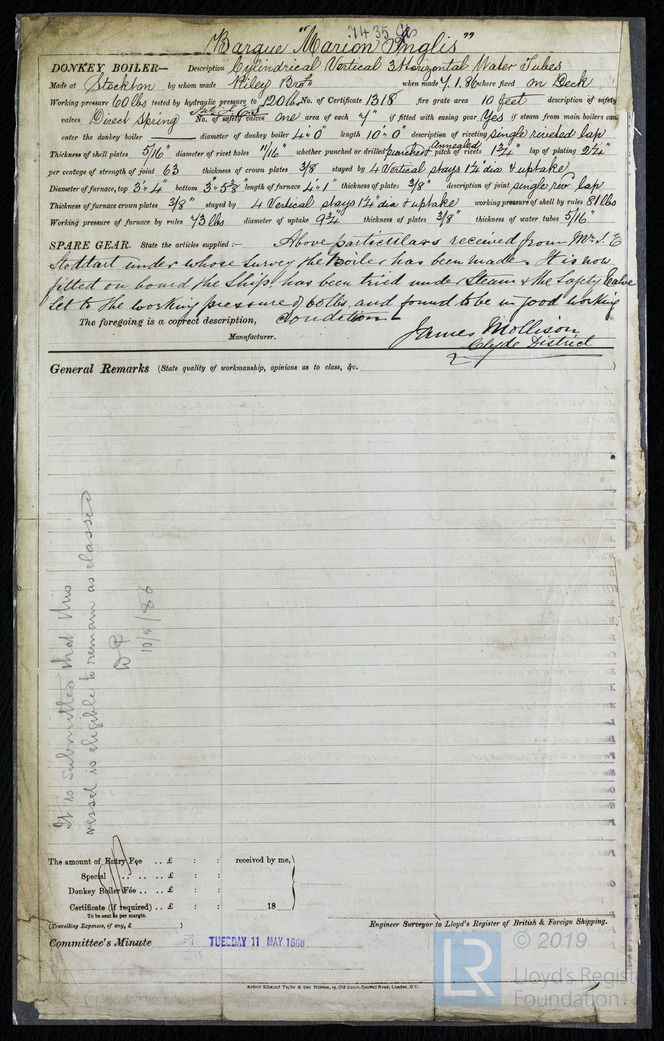 7435 Gls
Barque "Marion Inglis"
DONKEY BOILER— Description Cylindrical Vertical 3 Horizontal Water Tubes
Made at Stockton by whom made Riley Bros when made 7.1.86 where fixed on Deck
Working pressure 60 lbs tested by hydraulic pressure to 120 lbs No. of Certificate 1318 fire grate area 10 feet description of safety
valves Direct Spring No. of safety valves one area of each 7" if fitted with easing gear Yes if steam from main boilers can
enter the donkey boiler —— diameter of donkey boiler 4'. 0" length 10'. 0" description of riveting single riveted lap
Thickness of shell plates 5/16" diameter of rivet holes 11/16" whether punched or drilled punched Annealed pitch of rivets 1 3/4" lap of plating 2 1/4"
per centage of strength of joint 63 thickness of crown plates 3/8 stayed by 4 Vertical stays 1 1/4" dia & uptake
Diameter of furnace, top 3'. 4" bottom 3'. 5 3/8" length of furnace 4'. 1" thickness of plates 3/8" description of joint single riv lap
Thickness of furnace crown plates 3/8" stayed by 4 Vertical stays 1 1/4" dia & uptake working pressure of shell by rules 81 lbs
Working pressure of furnace by rules 73 lbs diameter of uptake 9 3/4" thickness of plates 3/8" thickness of water tubes 5/16"
SPARE GEAR. State the articles supplied:— Above particulars received from Mr.
Stoddart under whose survey the Boiler has been made. It is now
fitted on board the Ship, has been tried under Steam & the Safety Valve
set to the working pressure of 60 lbs, and found to be in good working
The foregoing is a correct description, condition.
Manufacturer. James Mollison
Clyde District
General Remarks (State quality of workmanship, opinions as to class, &c.
It is submitted that this
vessel is eligible to remain as classed
10/5/86
The amount of Entry Fee .. £ : : received by me,
Special .. .. .. £ : :
Donkey Boiler Fee .. .. £ : :
Certificate (if required) .. £ : : 18
To be sent as per margin.
(Travelling Expenses, if any, £ )
Engineer Surveyor to Lloyd's Register of British & Foreign Shipping.
Committee's Minute TUESDAY 11 MAY 1886
Robert Edmund Taylor & Son Printers, 19, Old Street, Goswell Road, London, E.C.
LR © 2019
Lloyd's Register
Foundation